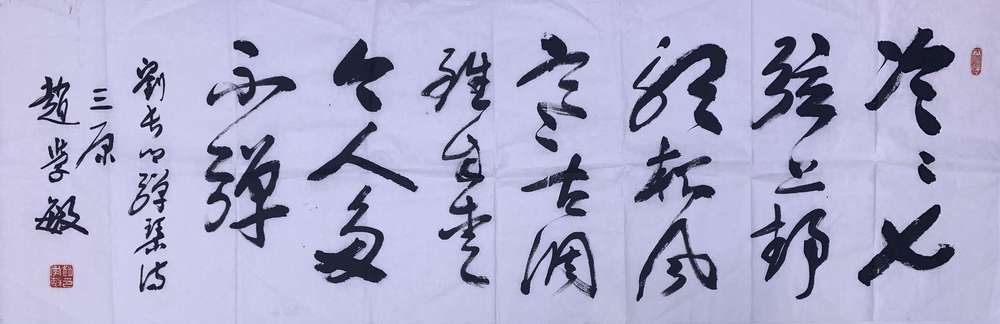 泠泠七
弦上静
聽松風
寒古調
雖自愛
今人多
不彈
劉长卿彈琴诗
三原
趙学敏